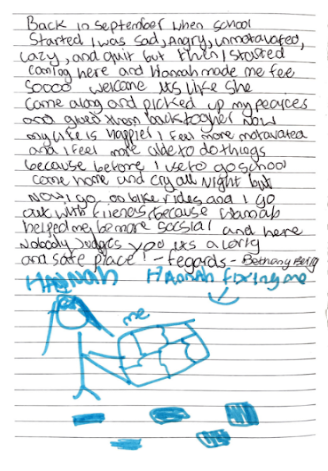 Back in september when school
Started I was sad, angry, unmotavated,
Lazy, and quit but then I started
coming here and Hannah made me fee
soooo welcome its like she
came along and picked up my peaces
and glued them back together now
my life is happier I feel more motavated
and I feel more able to do things
because before I use to go school
come home and cry all night but
now I go on bike rides and I go
out with friends because Hannah
helped me be more social and here
nobody judges you its a lovly
and safe place! - regards - Bethany
HANNAH HANNAH fixing me
me